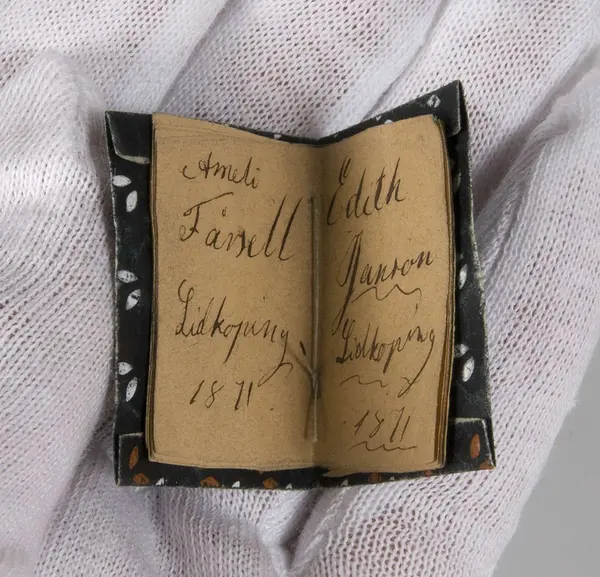 Ameli
Lidkoping
1871.
Edith
Janson
Lidkoping
1871